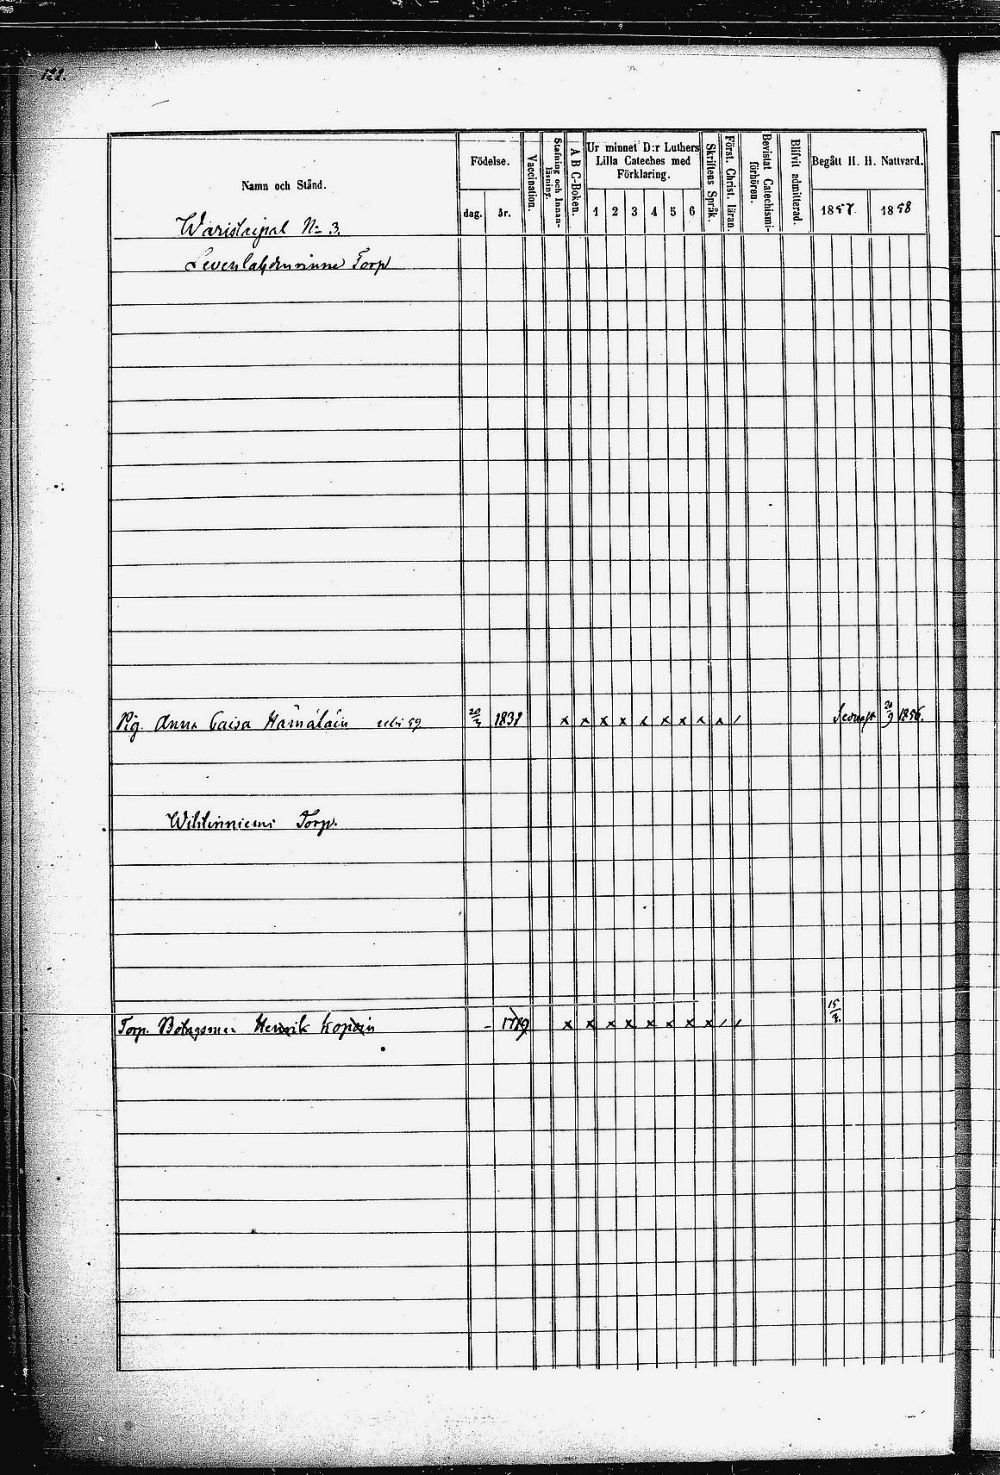 122.
Namn och Stånd.
Födelse.
dag. år.
Vaccination.
Stafning och Innan-läsning.
A B C-Boken.
Ur minnet D:r Luthers
Lilla Cateches med
Förklaring.
1 2 3 4 5 6
Skriftens Språk.
Först. Christ. läran.
Bevistat Catechismi-förhören.
Blifvit admitterad.
Begått H. H. Nattvard.
1857. 1858
Waristaipal N= 3.
Torp
Pig. Anna Caisa Hämäläin 59 20/3 1831 x x x x x x x x x / 20/9 1856.
Torp.
Torp. Bolagsman Henrik Kopoin - 1779 x x x x x x x x / / 15/3.